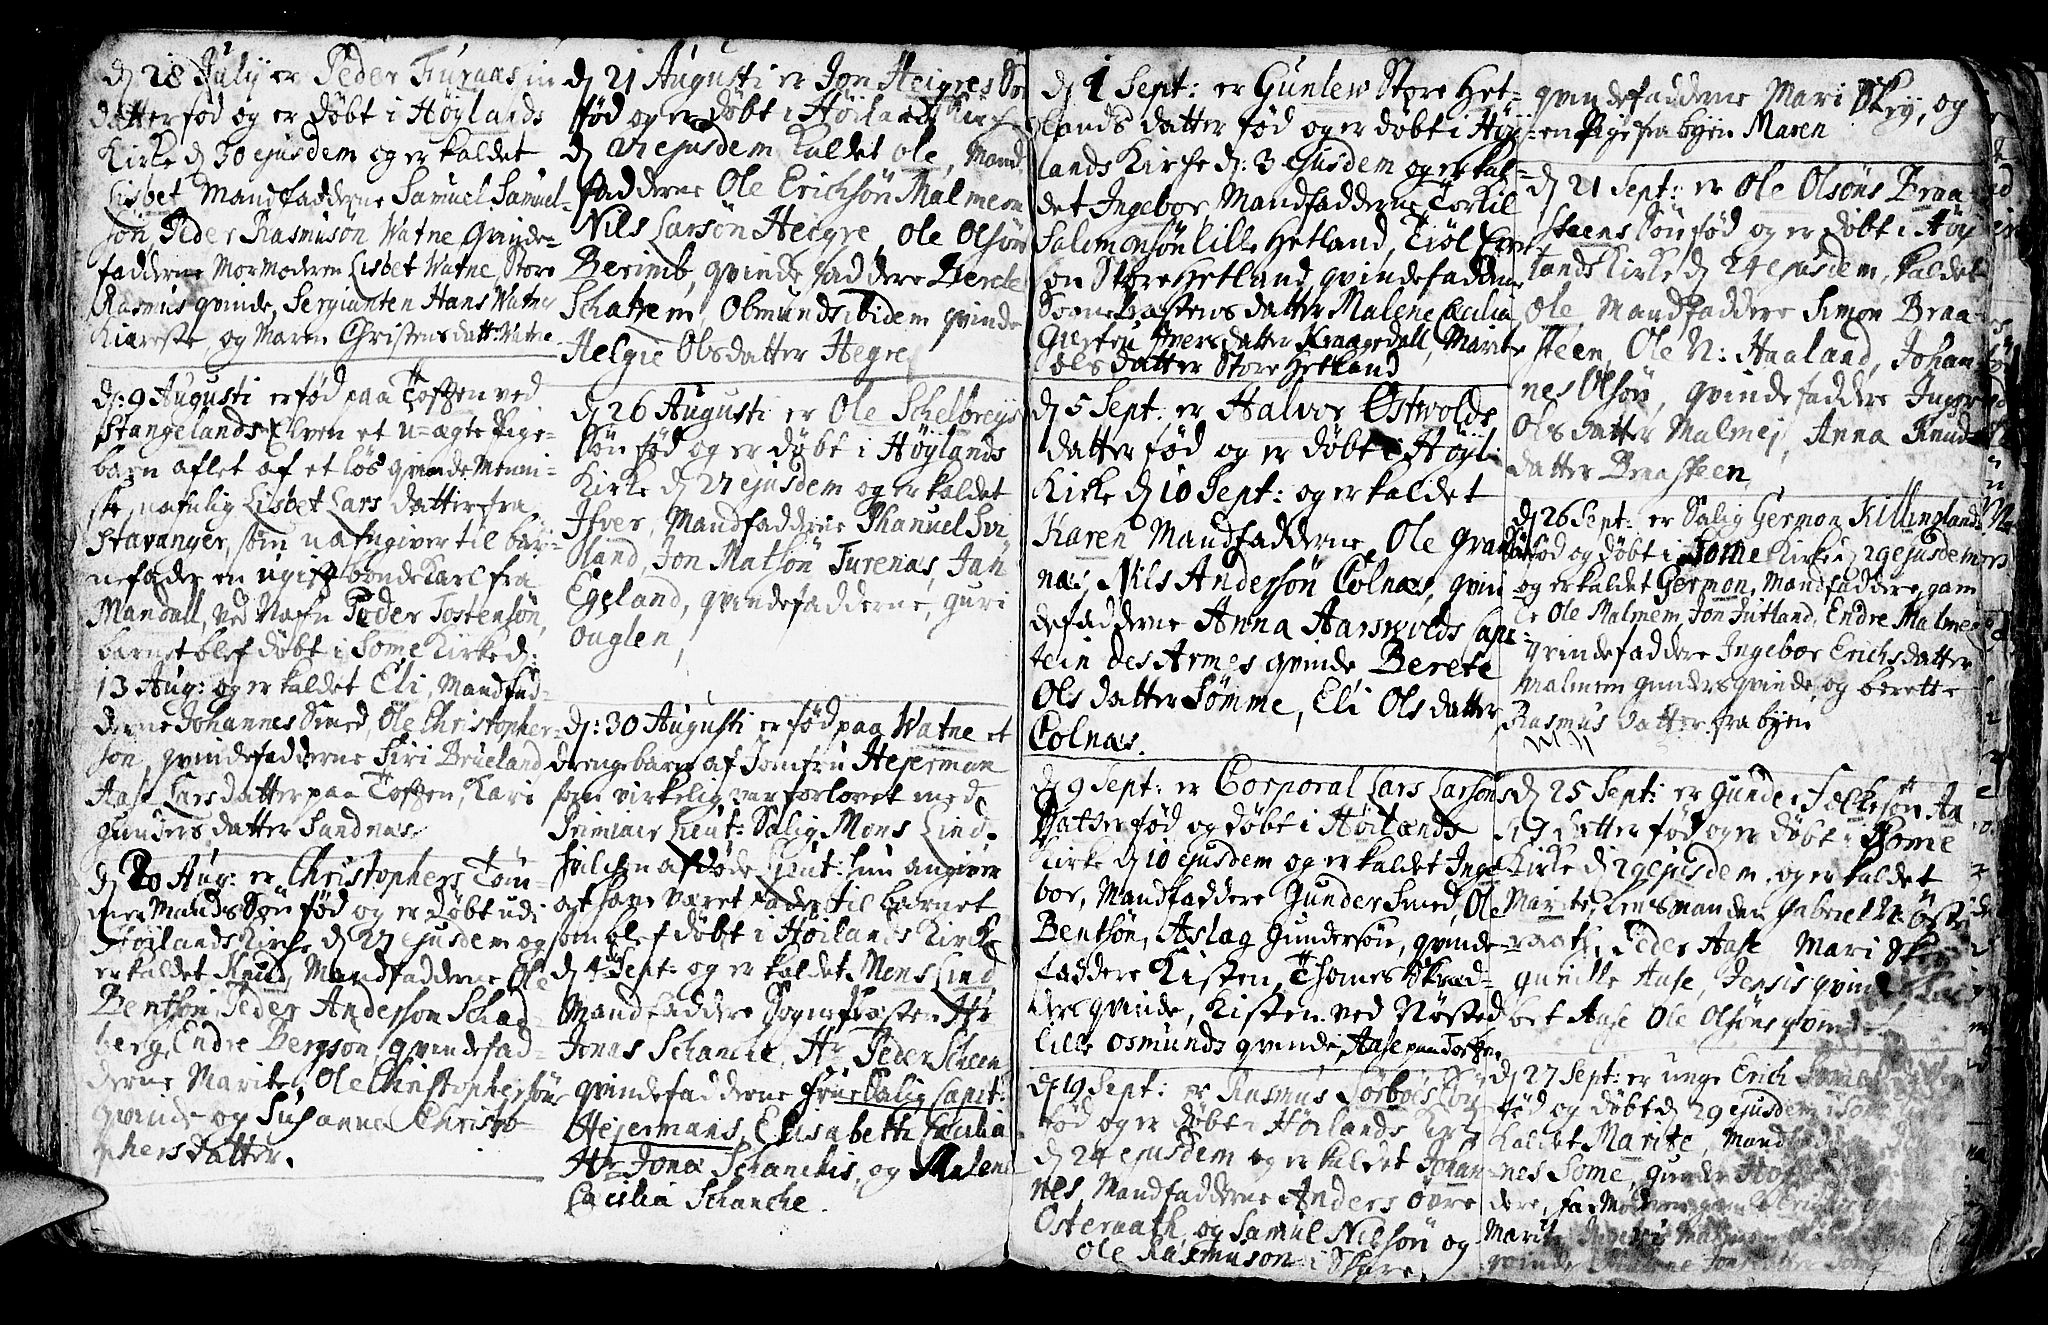 dj 28 July er Peder Furaas in
datter fød og er døbt i Høylands
Kirke dj 30 ejusdem og er kaldet
Lisbet, Mandfadderne Samuel Samuel-
søn, Peder Rasmusøn Watne Qvinde-
fadderne Mormoderen Lisbet Watne, Store
Rasmus qvinde, Sergianten Hans Watne
Kiæreste, og Maren Christensdatt: Watne
dj: 9 Augusti er fød paa Toften ved
Stangelands Elven et u-ægte Pige-
barn aflet af et løs qvinde Menni-
ske, nafnlig Lisbet Lars datter fra
Stavanger, som udgiver til bar-
nefader en ugift bonde karl fra
Mandall, ved Nafn Peder Tostensøn,
barnet blef døbt i Some Kirke d:
13 Aug: og er kaldet Eli, Mandfad-
derne Johannes Smed, Ole Christopher-
søn, qvindefadderne Siri Brueland
Aase Lars datter paa Toften, Kari
Gunders datter Sandnas.
dj 20 Aug: er Christophers Tøm-
mer Mands Søn fød og er døbt udi
Høilands Kirche dj 27 ejusdem og
er kaldet Knud, Mandfadderne Ole
Bentsøn, Peder Andersøn Schad-
berg, Endre Bergson, qvindefad-
derne Marite, Ole Christophersøns
qvinde og Susanna Christo-
phers datter.
dj 21 Augusti er Jon Heigres Søn
fød og er døbt i Høilands Kirche
dj 27 ejusdem kaldet Ole, Mand
fadderne Ole Erichsøn Malmem
Nils Larsøn Heigre, Ole Olsøn
Berimb, qvinde faddere Berete
Schatzem, Osmunds ibidem qvinde
Helgie Olsdatter Hegre
dj 26 Augusti er Ole Schelbreys
Søn fød og er døbt i Høylands
Kirke dj 27 ejusdem og er kaldet
Ifver, Mandfadderne Phanuel Svi
land, Jon Matsøn Furenas, Jan
Egeland, qvindefadderne, Guri
Ouglen,
dj: 30 Augusti er fød paa Watne et
drengebarn af Jomfru Hejerman
som virkelig var forlovet med
Primiair Lieut: Salig Mons Lind-
hielchen afdøde Lieut: hun angiver
at have været fader til barnet
som blef døbt i Høilands Kirke
dj 4 Sept: og er kaldet Mens Lind
Mandfaddere Sogne Præsten Hr
Jonas Schanche, Hr Peder Scheen
qvindefadderne Frue Salig Capit:
Hejermans, Elisabeth Cæcilia
Hr Jonæ Schanchis, og Malene
Cæcilia Schanche.
dj 1 Sept: er Gunlew Store Het-
lands datter fød og er døbt i Høy-
lands Kirche dj: 3 ejusdem og er kal-
det Ingebor, Mandfadderne Torkil
Salomonsøn lille Hetland, Tiøl
søn Store Hetland, qvindefadderne
Sogne Præstens datter Malene Cæcilia
Gurtru Iversdatter Kraagedall, Marite
Ols datter Store Hetland
dj 5 Sept: er Halvor Ostwolds
datter fød og er døbt i Høyl:
Kirke dj 10 Sept: og er kaldet
Karen Mandfadderne Ole Gra
nas, Nils Andersøn Folnas, qvin
defadderne Anna Aarsvolds Cap-
tein des Armes qvinde Berete
Ols datter Sømme, Eli Ols datter
Folnas.
dj 9 Sept: er Corporal Lars Larsøns
Datter fød og døbt i Høilands
Kirke dj 10 ejusdem og er kaldet Inge
bor, Mandfaddere Gunder Smed, Ole
Bentsøn, Aslag Gundersøn, qvinde-
faddere Kisten, Thomes Skred-
ders qvinde, Kisten ved Nøsted
lille Osmunds qvinde, Aase paa Toften
dj 19 Sept: er Rasmus Sørbøes Søn
fød og er døbt i Høilands Kirke
dj 24 ejusdem og er kaldet Johan-
nes, Mandfadderne Anders Ovre
Osteraath, og Samul Nilsøn og
Ole Rasmuson i Skare
qvindefadderne Mari Skeij, og
en Pige fra byen Maren
dj 21 Sept: er Ole Olsøns Braa-
steens Søn fød og er døbt i Høy
lands Kirke dj 24 ejusdem, kaldet
Ole, Mandfaddere Simon Braa-
steen, Ole N: Haaland, Johan-
nes Olsøn, qvinde faddere Ingeri
Ols datter Malmej, Anna Knuds
datter Braasteen.
dj 26 Sept: er Salig Germon Killingland
Søn fød og døbt i Some Kirke 29 ejusdem
og er kaldet Germon, Mandfaddere, gam
le Ole Malmem, Jon Jutland, Endre Malmem
qvindefaddere Ingebor Erichsdatter
Malmem Gunders qvinde og berette
Rasmus datter fra byen
dj 25 Sept: er Gunder Folkesøn Aa
datter fød og er døbt i Some
Kirke d: 29 ejusdem, og er kaldet
Marite, Lensmanden Gabriel N: Øste
raath, Peder Aase Mari Skeij
Gunille Aase, Jensis qvinde
bet Aase Ole Olsøns qvinde
dj 27 Sept: er unge Erich Somes
fød og døbt dj 29 ejusdem i Some
kaldet Marite, Mandfad
nes Some, Gunder
dere, Far Moderen gamle Erichs
Marite
qvinde Malene Jons datter Some